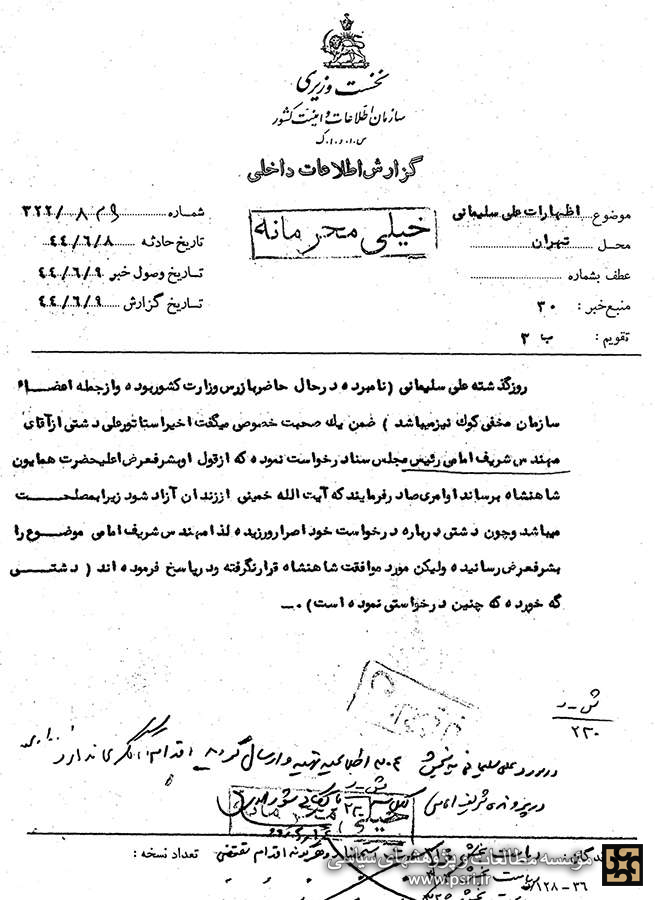 نخست وزیری
سازمان اطلاعات و امنیت کشور
س.ا.و.ا.ک
گزارش اطلاعات داخلی
موضوع اظهارات علی سلیمانی
محل تهران
عطف بشماره
منبع خبر : ۳۰
تقویم : ب ۳
خیلی محرمانه
شماره ۳۲۲/ ۸۰۹
تاریخ حادثه ۴۴/۶/۸
تاریخ وصول خبر ۴۴/۶/۹
تاریخ گزارش ۴۴/۶/۹
روزگذشته علی سلیمانی (نامبرده در حال حاضر بازرس وزارت کشوربوده وازجمله اعضاء
سازمان مخفی کوک نیزمیباشد ) ضمن یك صحبت خصوصی میگفت اخیراسناتورعلی دشتی ازآقای
مهندس شریف امامی رئیس مجلس سنادرخواست نموده که ازقول اوبشرفعرض اعلیحضرت همایون
شاهنشاه برساند اوامری صادرفرمایند که آیت الله خمینی اززندان آزاد شود زیرابمصلحت
میباشد وچون دشتی درباره درخواست خود اصرارورزیده لذامهندس شریف امامی موضوع را
بشرفعرض رسانیده ولیکن مورد موافقت شاهنشاه قرارنگرفته ودرپاسخ فرموده اند ( دشتی
گه خورده که چنین درخواستی نموده است) .ــ
ش-ر
۲۳۰
در مورد علی سلیمانی به بخش ۳۰۴ اطلاعیه تهیه و ارسال گردید اقدام دیگری ندارد
در پرونده شریف امامی
ش-ر
خیلی محرمانه
تعداد نسخه :
۳۶-۱۲۸
موسسه مطالعات و پژوهشهای سیاسی
www.psri.ir